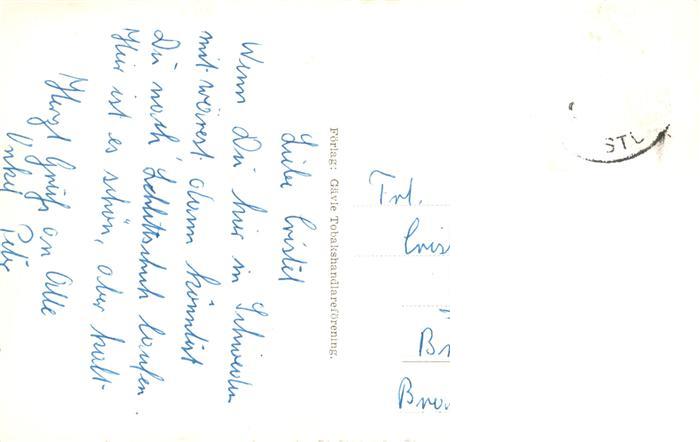 Liebe Cristel
Wenn Du hier in Schweden
mit wärest, dann könntest
Du noch Schlittschuh laufen.
Hier ist es schön, aber kalt.
Herzl Grüße an Alle
Onkel Peter
Förlag: Gävle Tobakshandlareförening.
Frl.
Cris
Br
Bre
STL